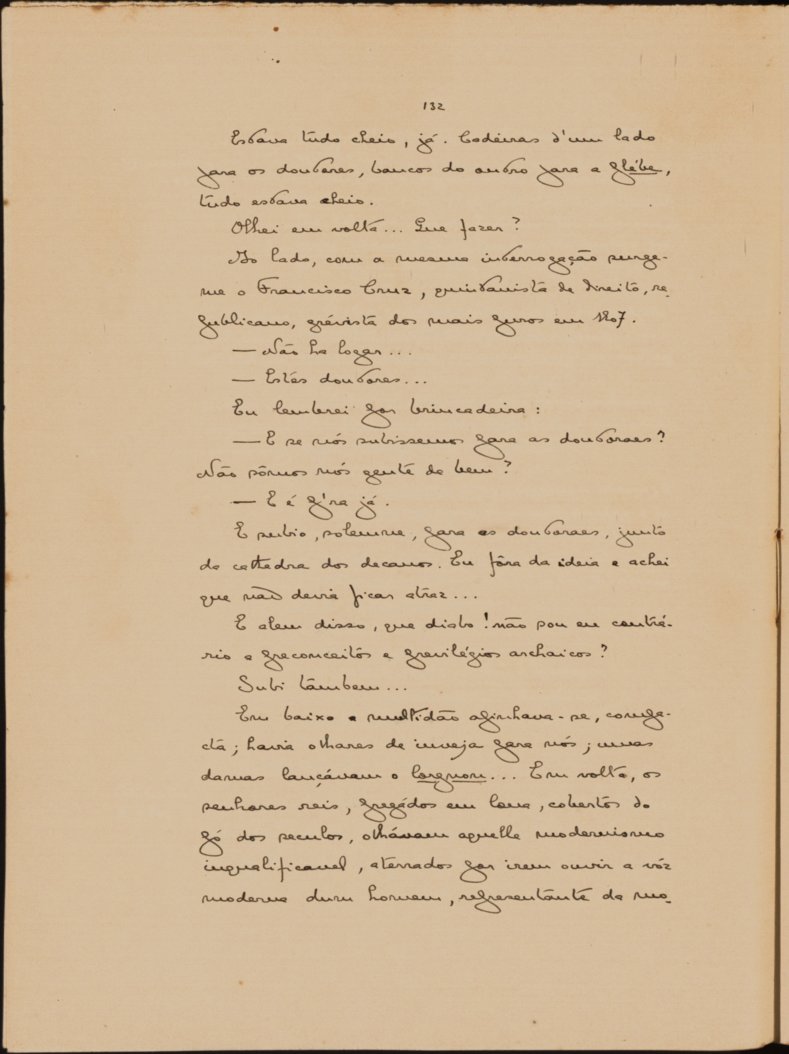 132
Estava tudo cheio, já. Cadeiras d'um lado
para os doutores, bancos do outro para a glébe,
tudo estava cheio.
Olhei em volta... Que fazer?
Ao lado, com a mesma interrogação surge-
me o Francisco Cruz, quintanista de direito, re-
publicano, grévista dos mais puros em 1907.
— Não ha logar...
— Estes doutores...
Eu lembrei por brincadeira:
— E se nós subissemos para as doutoraes?
Não sômos nós gente de bem?
— E é p'ra já.
E subio, solemne, para as doutoraes, junto
da cathedra dos decanos. Eu fôra da ideia e achei
que não devia ficar atraz...
E alem disso, que diabo! não sou eu contrá-
rio a preconceitos e previlégios archaicos?
Subi tâmbem...
Em baixo a multidão apinhava-se, compa-
cta; havia olhares de inveja para nós; umas
damas lançávam o lorgnon... Em volta, os
senhores reis, pregádos em lona, cobertos do
pó dos seculos, olhávam aquelle modernismo
inqualificavel, aterrados por irem ouvir a vóz
moderna dum homem, representante da mo-